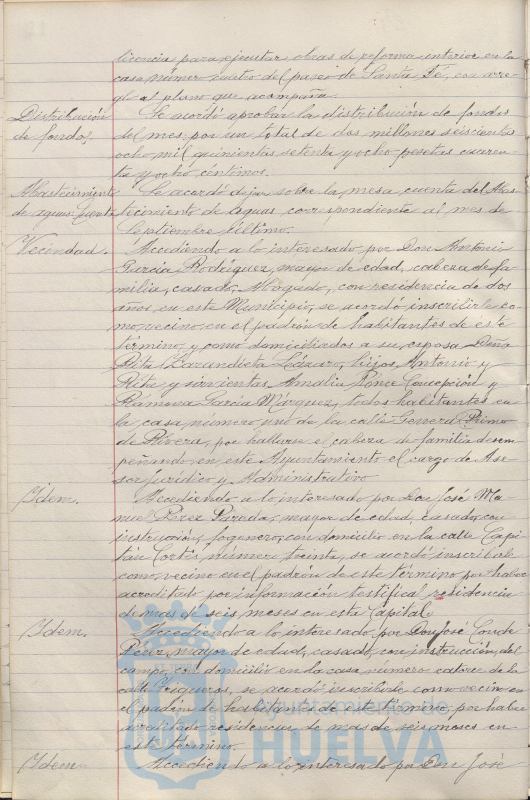 licencia para ejecutar obras de reforma interior en la
casa número cuatro del paseo de Santa Fé, con arre-
glo al plano que acompaña.
Distribución de fondos.
Se acordó aprobar la distribución de fondos
del mes, por un total de dos millones seiscientas
ocho mil quinientas setenta y ocho pesetas cuaren-
ta y ocho céntimos.
Abastecimiento de aguas. Cuenta
Se acordó dejar sobre la mesa, cuenta del Abas-
tecimiento de aguas, correspondiente al mes de
Septiembre último.
Vecindad.
Accediendo a lo interesado, por Don Antonio
García Rodríguez, mayor de edad, cabeza de fa-
milia, casado, Abogado, con residencia de dos
años en este Municipio, se acordó inscribirle co-
mo vecino en el padrón de habitantes de este
término, y como domiciliados a su esposa Doña
Rita Barandieta Lázaro, hijos Antonio y
Rita y sirvientas Amalia Ponce Concepción y
Ramona García Márquez, todos habitantes en
la casa número uno de la calle General Primo
de Rivera, por hallarse el cabeza de familia desem-
peñando en este Ayuntamiento el cargo de Ase-
sor Jurídico y Administrativo
Idem.
Accediendo a lo interesado por Don José Ma-
nuel Pérez Pareda, mayor de edad, casado, con
instrucción, fogonero, con domicilio en la calle Capi-
tán Cortés, número treinta, se acordó inscribirle
como vecino en el padrón de este término por haber
acreditado por información testifical residencia
de más de seis meses en esta Capital.
Idem.
Accediendo a lo interesado por Don José Conde
Pérez, mayor de edad, casado, con instrucción, del
campo, con domicilio en la casa número catorce de la
calle Trigueros, se acordó inscribirle como vecino en
el padrón de habitantes de este término, por haber
acreditado residencia de más de seis meses en
este término.
Idem.
Accediendo a lo interesado por Don José
Ayuntamiento de
HUELVA